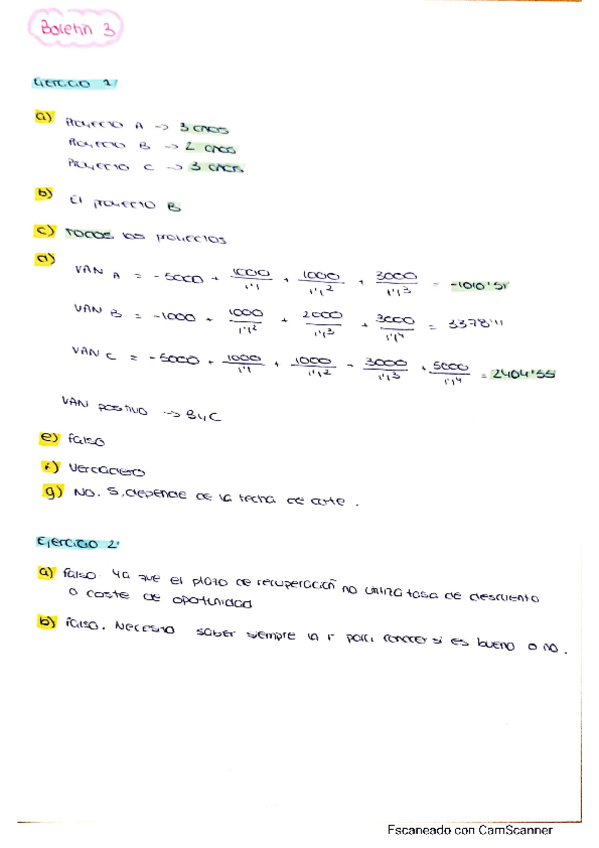 Boletín 3
Ejercicio 1
a) Proyecto A -> 3 años
Proyecto B -> 2 años
Proyecto C -> 3 años
b) El proyecto B
c) TODOS los proyectos
d)
VAN A = -5000 + 1000/1'1 + 1000/1'1² + 3000/1'1³ = -1010'51
VAN B = -1000 + 1000/1'1² + 2000/1'1³ + 3000/1'1⁴ = 3378'11
VAN C = -5000 + 1000/1'1 + 1000/1'1² + 3000/1'1³ + 5000/1'1⁴ = 2404'55
VAN positivo -> B y C
e) Falso
f) Verdadero
g) No. Si, depende de la fecha de corte.
Ejercicio 2
a) Falso. Ya que el plazo de recuperación no utiliza tasa de descuento
o coste de oportunidad
b) Falso. Necesito saber siempre la r para conocer si es bueno o no.
Escaneado con CamScanner